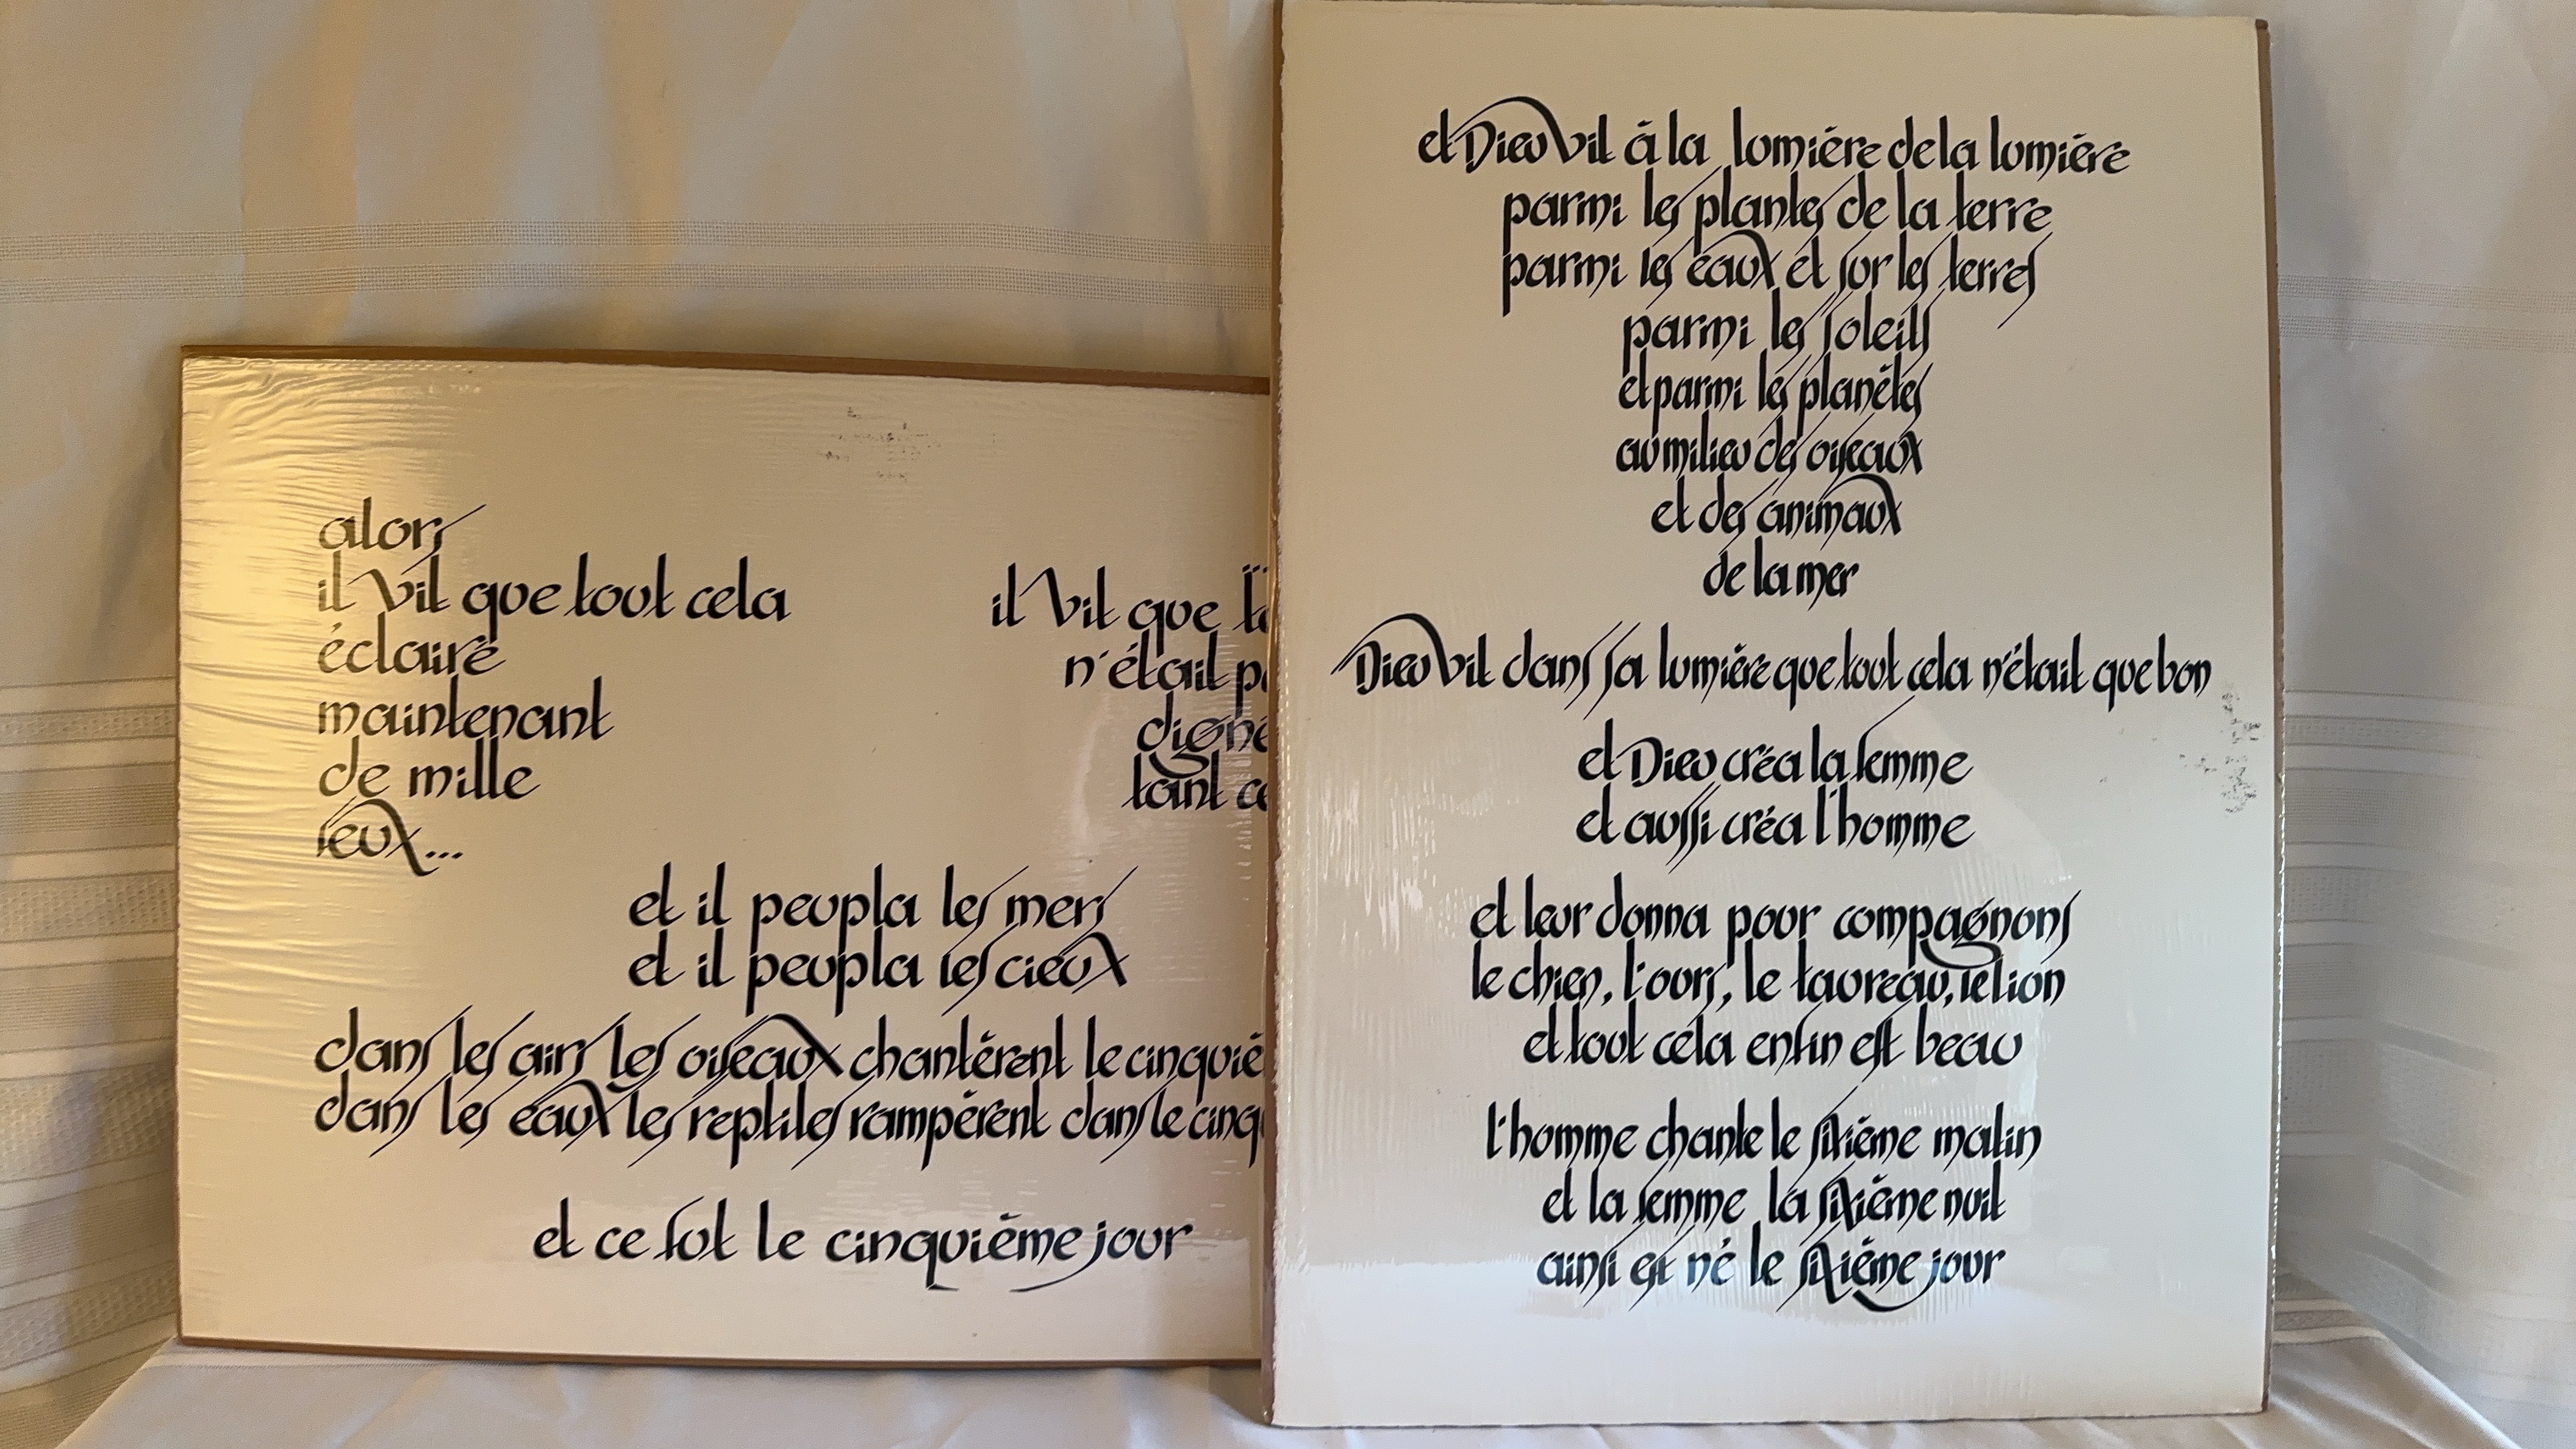 alors
il vit que tout cela
éclairé
maintenant
de mille
feux...
il vit que
n'était
tant
et il peupla les mers
et il peupla les cieux
dans les airs les oiseaux chantèrent le
dans les eaux les reptiles rampèrent dans le
et ce fut le cinquième jour
et Dieu vit à la lumière de la lumière
parmi les plantes de la terre
parmi les eaux et sur les terres
parmi les soleils
et parmi les planètes
au milieu des oiseaux
et des animaux
de la mer
Dieu vit dans sa lumière que tout cela n'était que bon
et Dieu créa la femme
et aussi créa l'homme
et leur donna pour compagnons
le chien, l'ours, le taureau, le lion
et tout cela enfin est beau
l'homme chante le sixième matin
et la femme la sixième nuit
ainsi est né le sixième jour